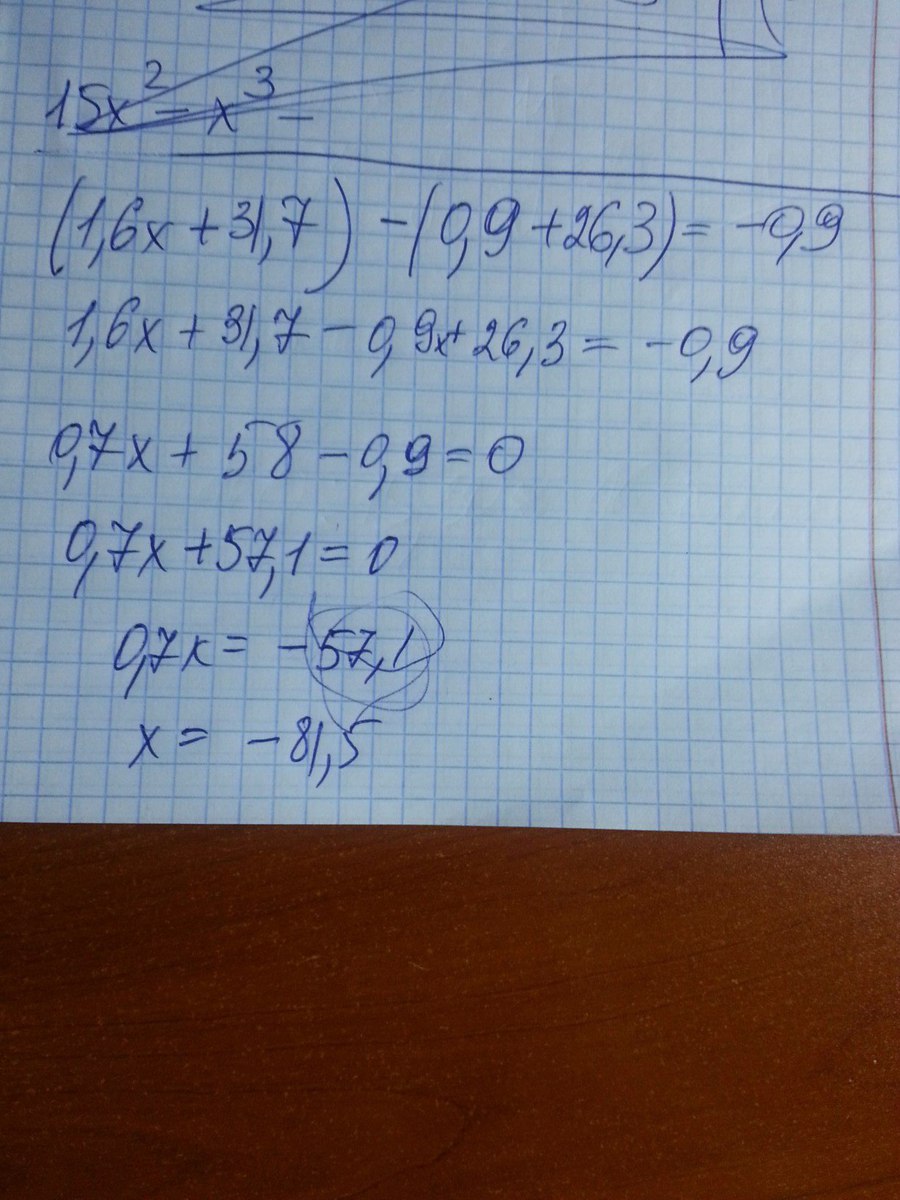 15x² - x³ -
(1,6x + 31,7) - (0,9 + 26,3) = -0,9
1,6x + 31,7 - 0,9x + 26,3 = -0,9
0,7x + 58 - 0,9 = 0
0,7x + 57,1 = 0
0,7x = -57,1
x = -81,5